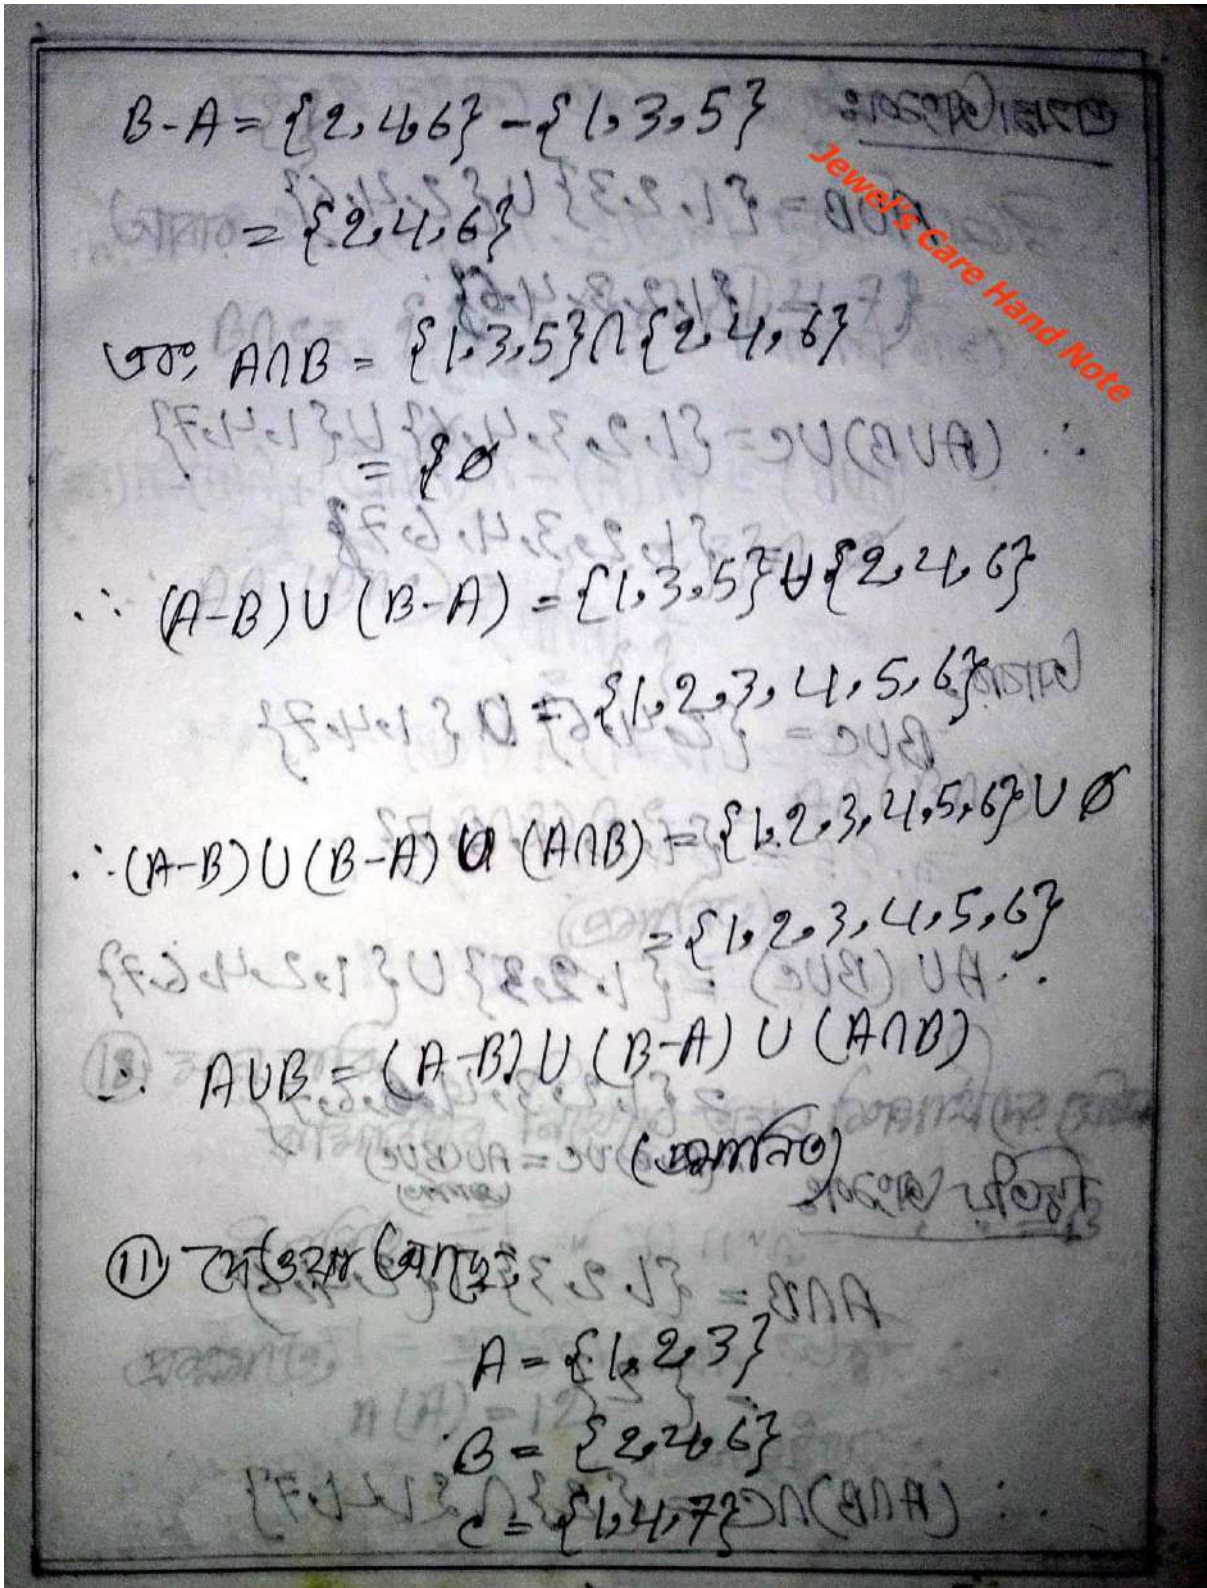 B-A = {2,4,6} - {1,3,5}
= {2,4,6}
Jewel's Care Hand Note
এবং, A∩B = {1,3,5}∩{2,4,6}
= {ø
∴ (A-B)∪(B-A) = {1,3,5}∪{2,4,6}
= {1,2,3,4,5,6}
∴ (A-B)∪(B-A)∪(A∩B) = {1,2,3,4,5,6}∪ø
= {1,2,3,4,5,6}
∴ A∪B = (A-B)∪(B-A)∪(A∩B)
(প্রমাণিত)
11) দেওয়া আছে,
A = {1,2,3}
B = {2,4,6}
C = {1,4,7}